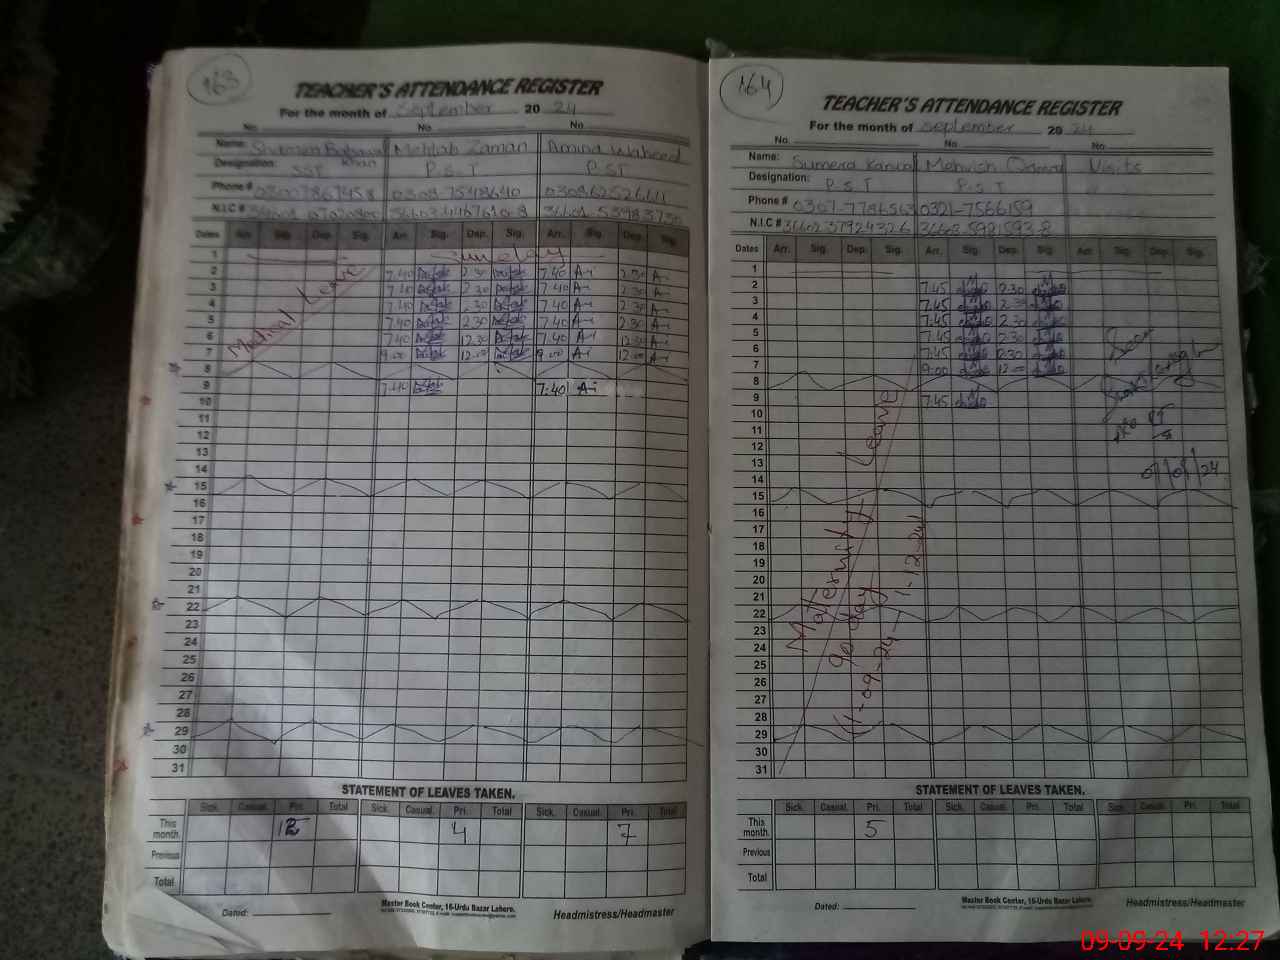 163
TEACHER'S ATTENDANCE REGISTER
For the month of September 20 24
No. No. No.
Name: Mehtab Zaman Amina Waheed
Designation: SST Khan P.S.T P.ST
Phone # 03007867458 0308.7548640
N.I.C #
Dates Arr. Sig. Dep. Sig. Arr. Sig. Dep. Sig. Arr. Sig. Dep. Sig.
1 Sunday
2 7:40 2:30 7:40 A-i 2:30 A-i
3 7:40 2:30 7:40 A-i 2:30 A-i
4 7:40 2:30 7:40 A-i 2:30 A-i
5 7:40 2:30 7:40 A-i 2:30 A-i
6 7:40 12:30 7:40 A-i 12:30 A-i
7 9:00 12:00 9:00 A-i 12:00 A-i
Medical Leave
8
9 7:40 7:40 A-i
10
11
12
13
14
15
16
17
18
19
20
21
22
23
24
25
26
27
28
29
30
31
STATEMENT OF LEAVES TAKEN.
Sick. Casual. Pri. Total Sick. Casual. Pri. Total Sick. Casual. Pri. Total
This month. 12 4 7
Previous
Total
Dated:
Master Book Center, 16-Urdu Bazar Lahore.
Headmistress/Headmaster
164
TEACHER'S ATTENDANCE REGISTER
For the month of september 20 24
No. No. No.
Name: Sumera Kanwal Mehvish Visits
Designation: P.S.T P.S.T
Phone # 0307-7786563 0321-7566159
N.I.C #
Dates Arr. Sig. Dep. Sig. Arr. Sig. Dep. Sig. Arr. Sig. Dep. Sig.
1
2 7:45 2:30
3 7:45 2:30
4 7:45 2:30
5 7:45 2:30
6 7:45 2:30
7 9:00 12:00
8
9 7:45
10
11
12
13
14
15
16
17
18
19
20
21
22
23
24
25
26
27
28
29
30
31
Matternity Leave
90 day
(1-09-24 — 1-12-24)
Seen
STATEMENT OF LEAVES TAKEN.
Sick. Casual. Pri. Total Sick. Casual. Pri. Total Sick. Casual. Pri. Total
This month. 5
Previous
Total
Dated:
Master Book Center, 16-Urdu Bazar Lahore.
Headmistress/Headmaster
09-09-24 12:27